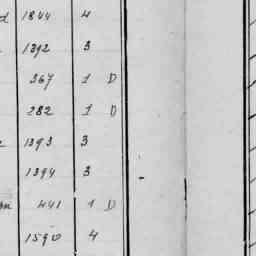 1844 4
1392 3
367 1 D
282 1 D
1393 3
1394 3
441 1 D
1590 4